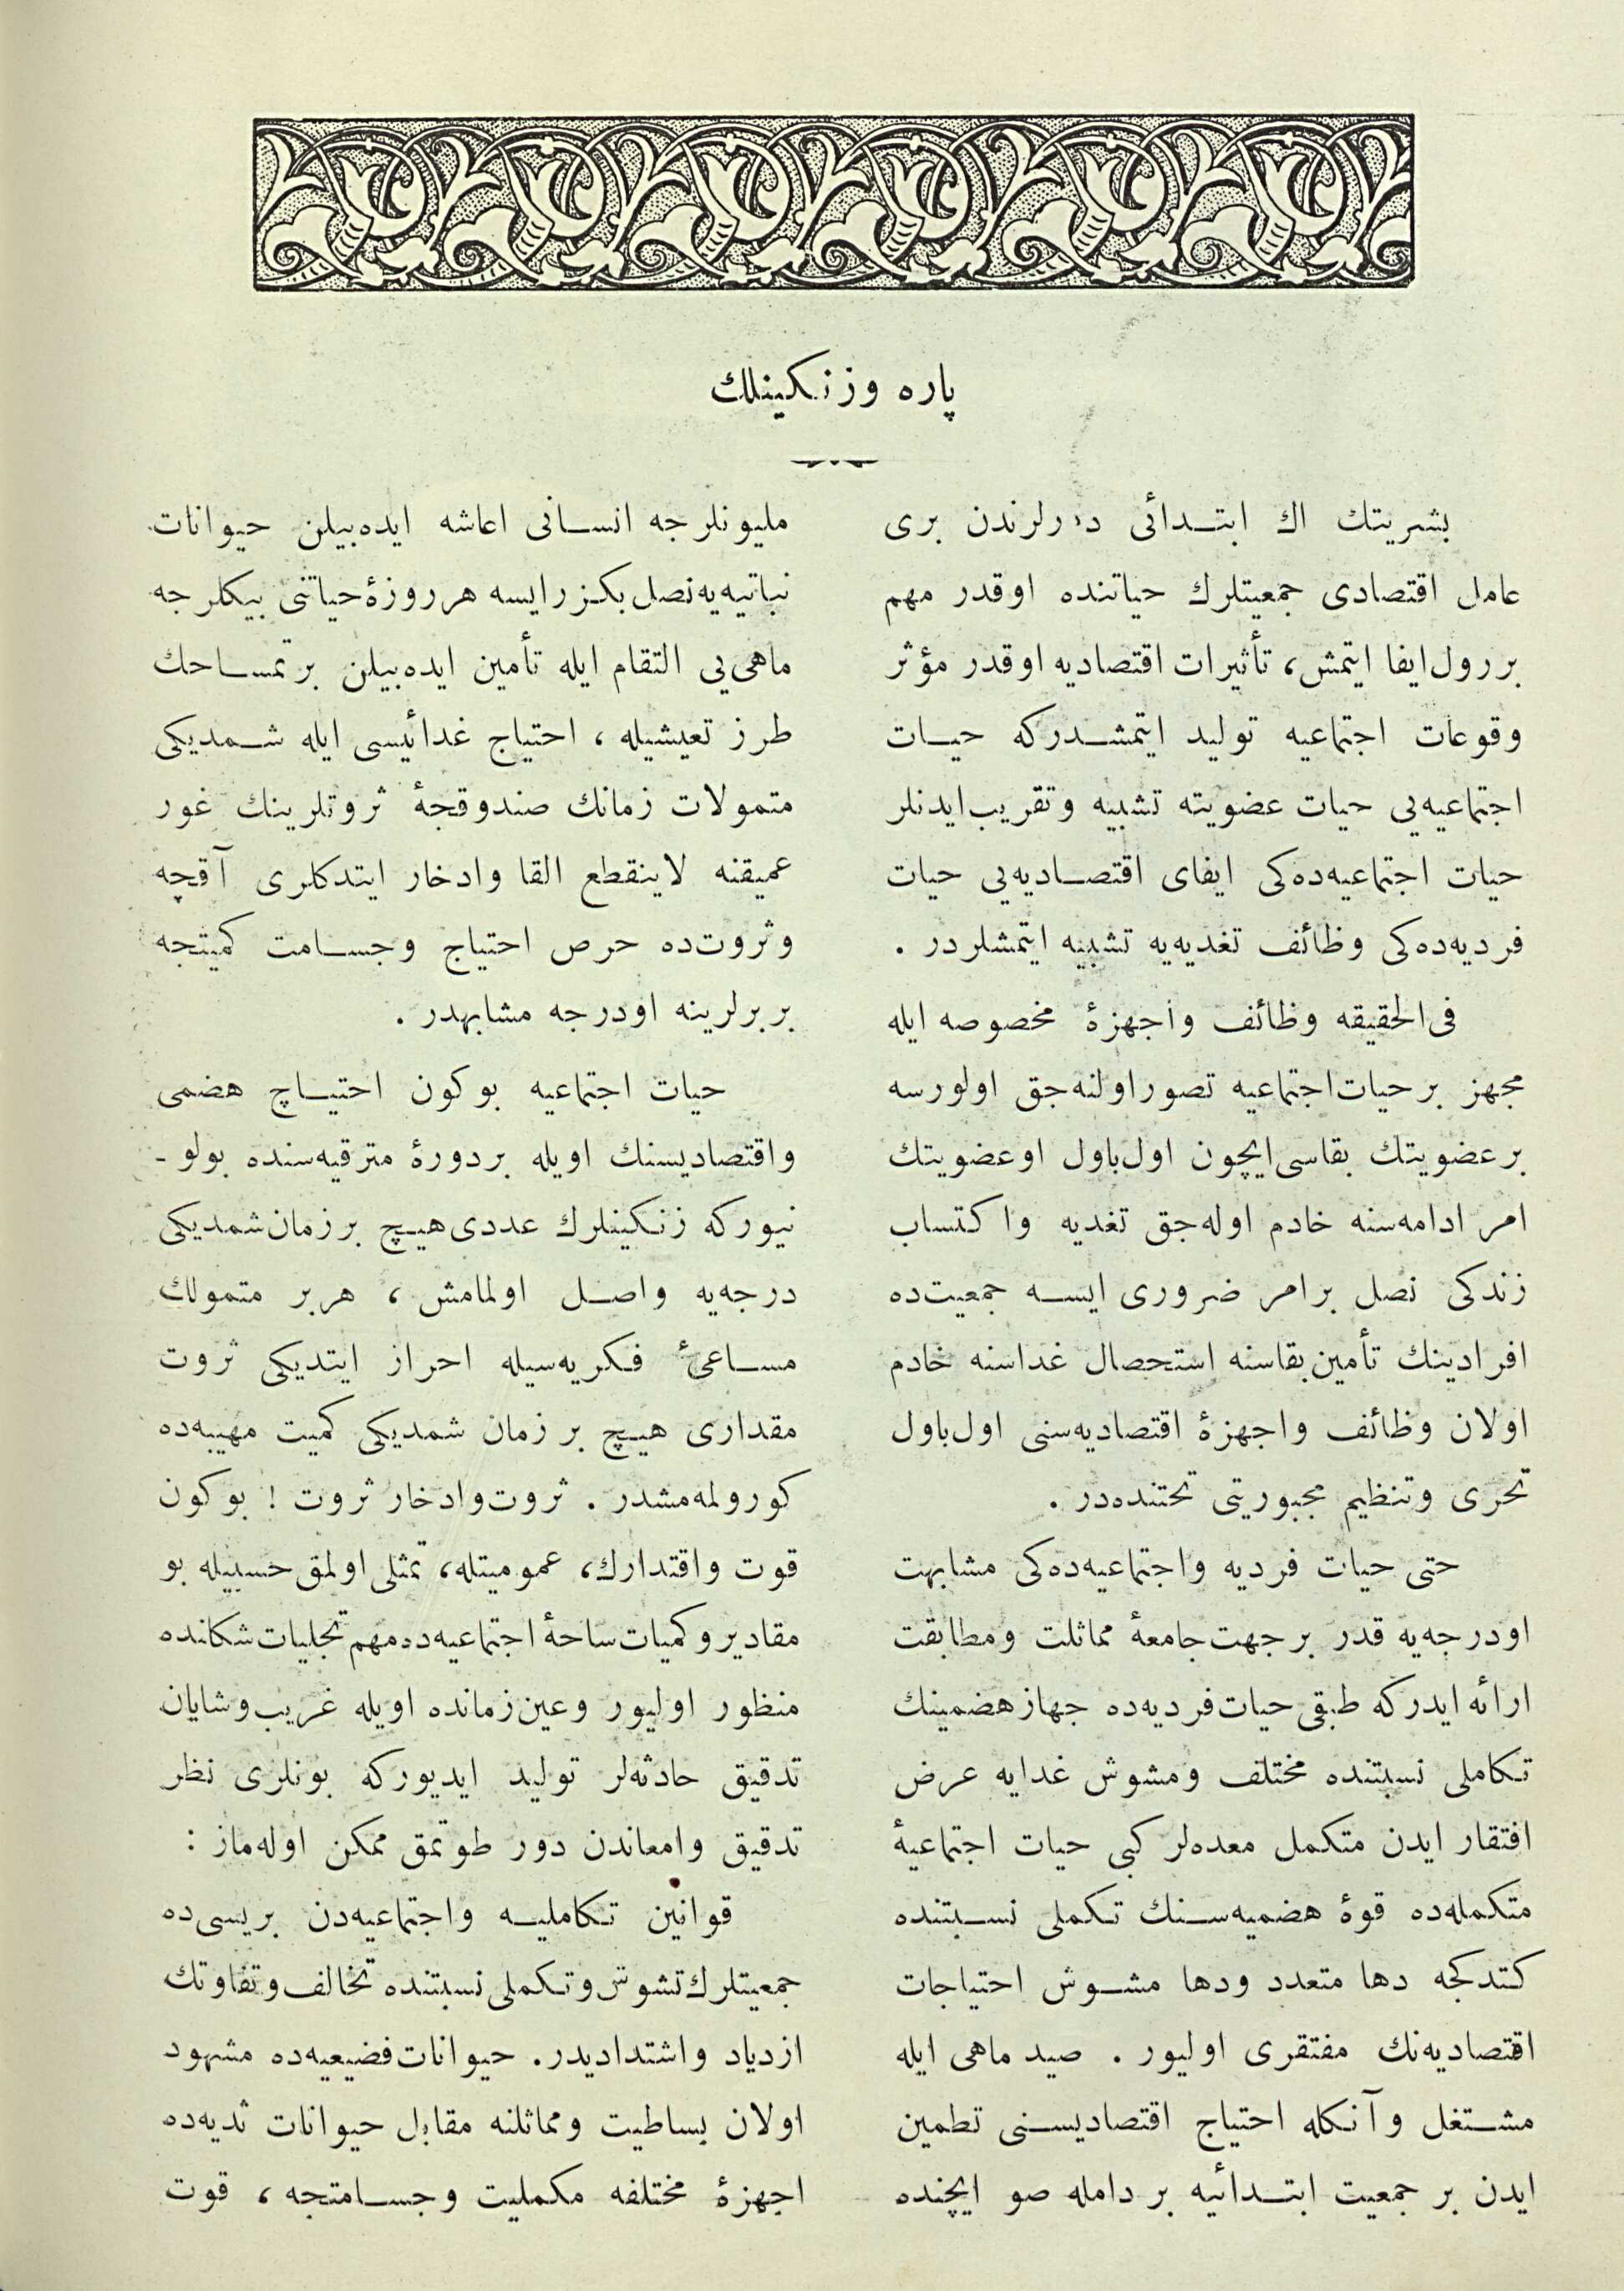 پاره وزنكينلك
بشريتك اك ابتدائی دورلرندن بری
عامل اقتصادی جمعيتلرك حياتنده اوقدر مهم
بررول ايفا ايتمش، تأثيرات اقتصاديه اوقدر مؤثر
وقوعات اجتماعيه توليد ايتمشدركه حيات
اجتماعيه‌يی حيات عضويته تشبيه وتقريب ايدنلر
حيات اجتماعيه‌ده‌كی ايفای اقتصاديه‌يی حيات
فرديه‌ده‌كی وظائف تغديه‌يه تشبيه ايتمشلردر .
فی‌الحقيقه وظائف واجهزهٔ مخصوصه ايله
مجهز برحيات اجتماعيه تصور اولنه‌جق اولورسه
برعضويتك بقاسی ايچون اول‌باول اوعضويتك
امر ادامه‌سنه خادم اوله‌جق تغديه واكتساب
زندكی نصل برامر ضروری ايسه جمعيت‌ده
افرادينك تأمين بقاسنه استحصال غداسنه خادم
اولان وظائف واجهزهٔ اقتصاديه‌سنی اول‌باول
تحری وتنظيم مجبوريتی تحتنده‌در .
حتی حيات فرديه واجتماعيه‌ده‌كی مشابهت
اودرجه‌يه قدر برجهت جامعهٔ مماثلت ومطابقت
ارائه ايدركه طبقی حيات فرديه‌ده جهاز هضمينك
تكاملی نسبتنده مختلف ومشوش غدايه عرض
افتقار ايدن متكمل معده‌لر كبی حيات اجتماعيهٔ
متكمله‌ده قوهٔ هضميه‌سنك تكملی نسبتنده
كتدكجه دها متعدد ودها مشوش احتياجات
اقتصاديه‌نك مفتقری اوليور . صيد ماهی ايله
مشتغل وآنكله احتياج اقتصاديسنی تطمين
ايدن بر جمعيت ابتدائيه بر دامله صو ايچنده
مليونلرجه انسانی اعاشه ايده‌بيلن حيوانات
نباتيه‌يه نصل بكزرايسه هرروزهٔ حياتنی بيكلرجه
ماهی‌يی التقام ايله تأمين ايده‌بيلن بر تمساحك
طرز تعيشيله ، احتياج غدائيسی ايله شمديكی
متمولات زمانك صندوقجهٔ ثروتلرينك غور
عميقنه لاينقطع القا وادخار ايتدكلری آقچه
وثروت‌ده حرص احتياج وجسامت كميتجه
بربرلرينه اودرجه مشابهدر .
حيات اجتماعيه بوكون احتياج هضمی
واقتصاديسنك اويله بردورهٔ مترقيه‌سنده بولو ـ
نيوركه زنكينلرك عددی هيچ برزمان شمديكی
درجه‌يه واصل اولمامش ، هربر متمولك
مساعئ فكريه‌سيله احراز ايتديكی ثروت
مقداری هيچ بر زمان شمديكی كميت مهيبه‌ده
كورولمه‌مشدر . ثروت وادخار ثروت ! بوكون
قوت واقتدارك، عموميتله، تمثلی اولمق حسبيله بو
مقادير وكميات ساحهٔ اجتماعيه‌ده مهم تجليات شكلنده
منظور اوليور وعين زمانده اويله غريب وشايان
تدقيق حادثه‌لر توليد ايديوركه بونلری نظر
تدقيق وامعاندن دور طوتمق ممكن اوله‌ماز :
قوانين تكامليه واجتماعيه‌دن بريسی‌ده
جمعيتلرك تشوش وتكملی نسبتنده تخالف وتفاوتك
ازدياد واشتداديدر. حيوانات فضيعيه‌ده مشهود
اولان بساطيت ومماثلته مقابل حيوانات ثديه‌ده
اجهزهٔ مختلفه مكمليت وجسامتجه ، قوت